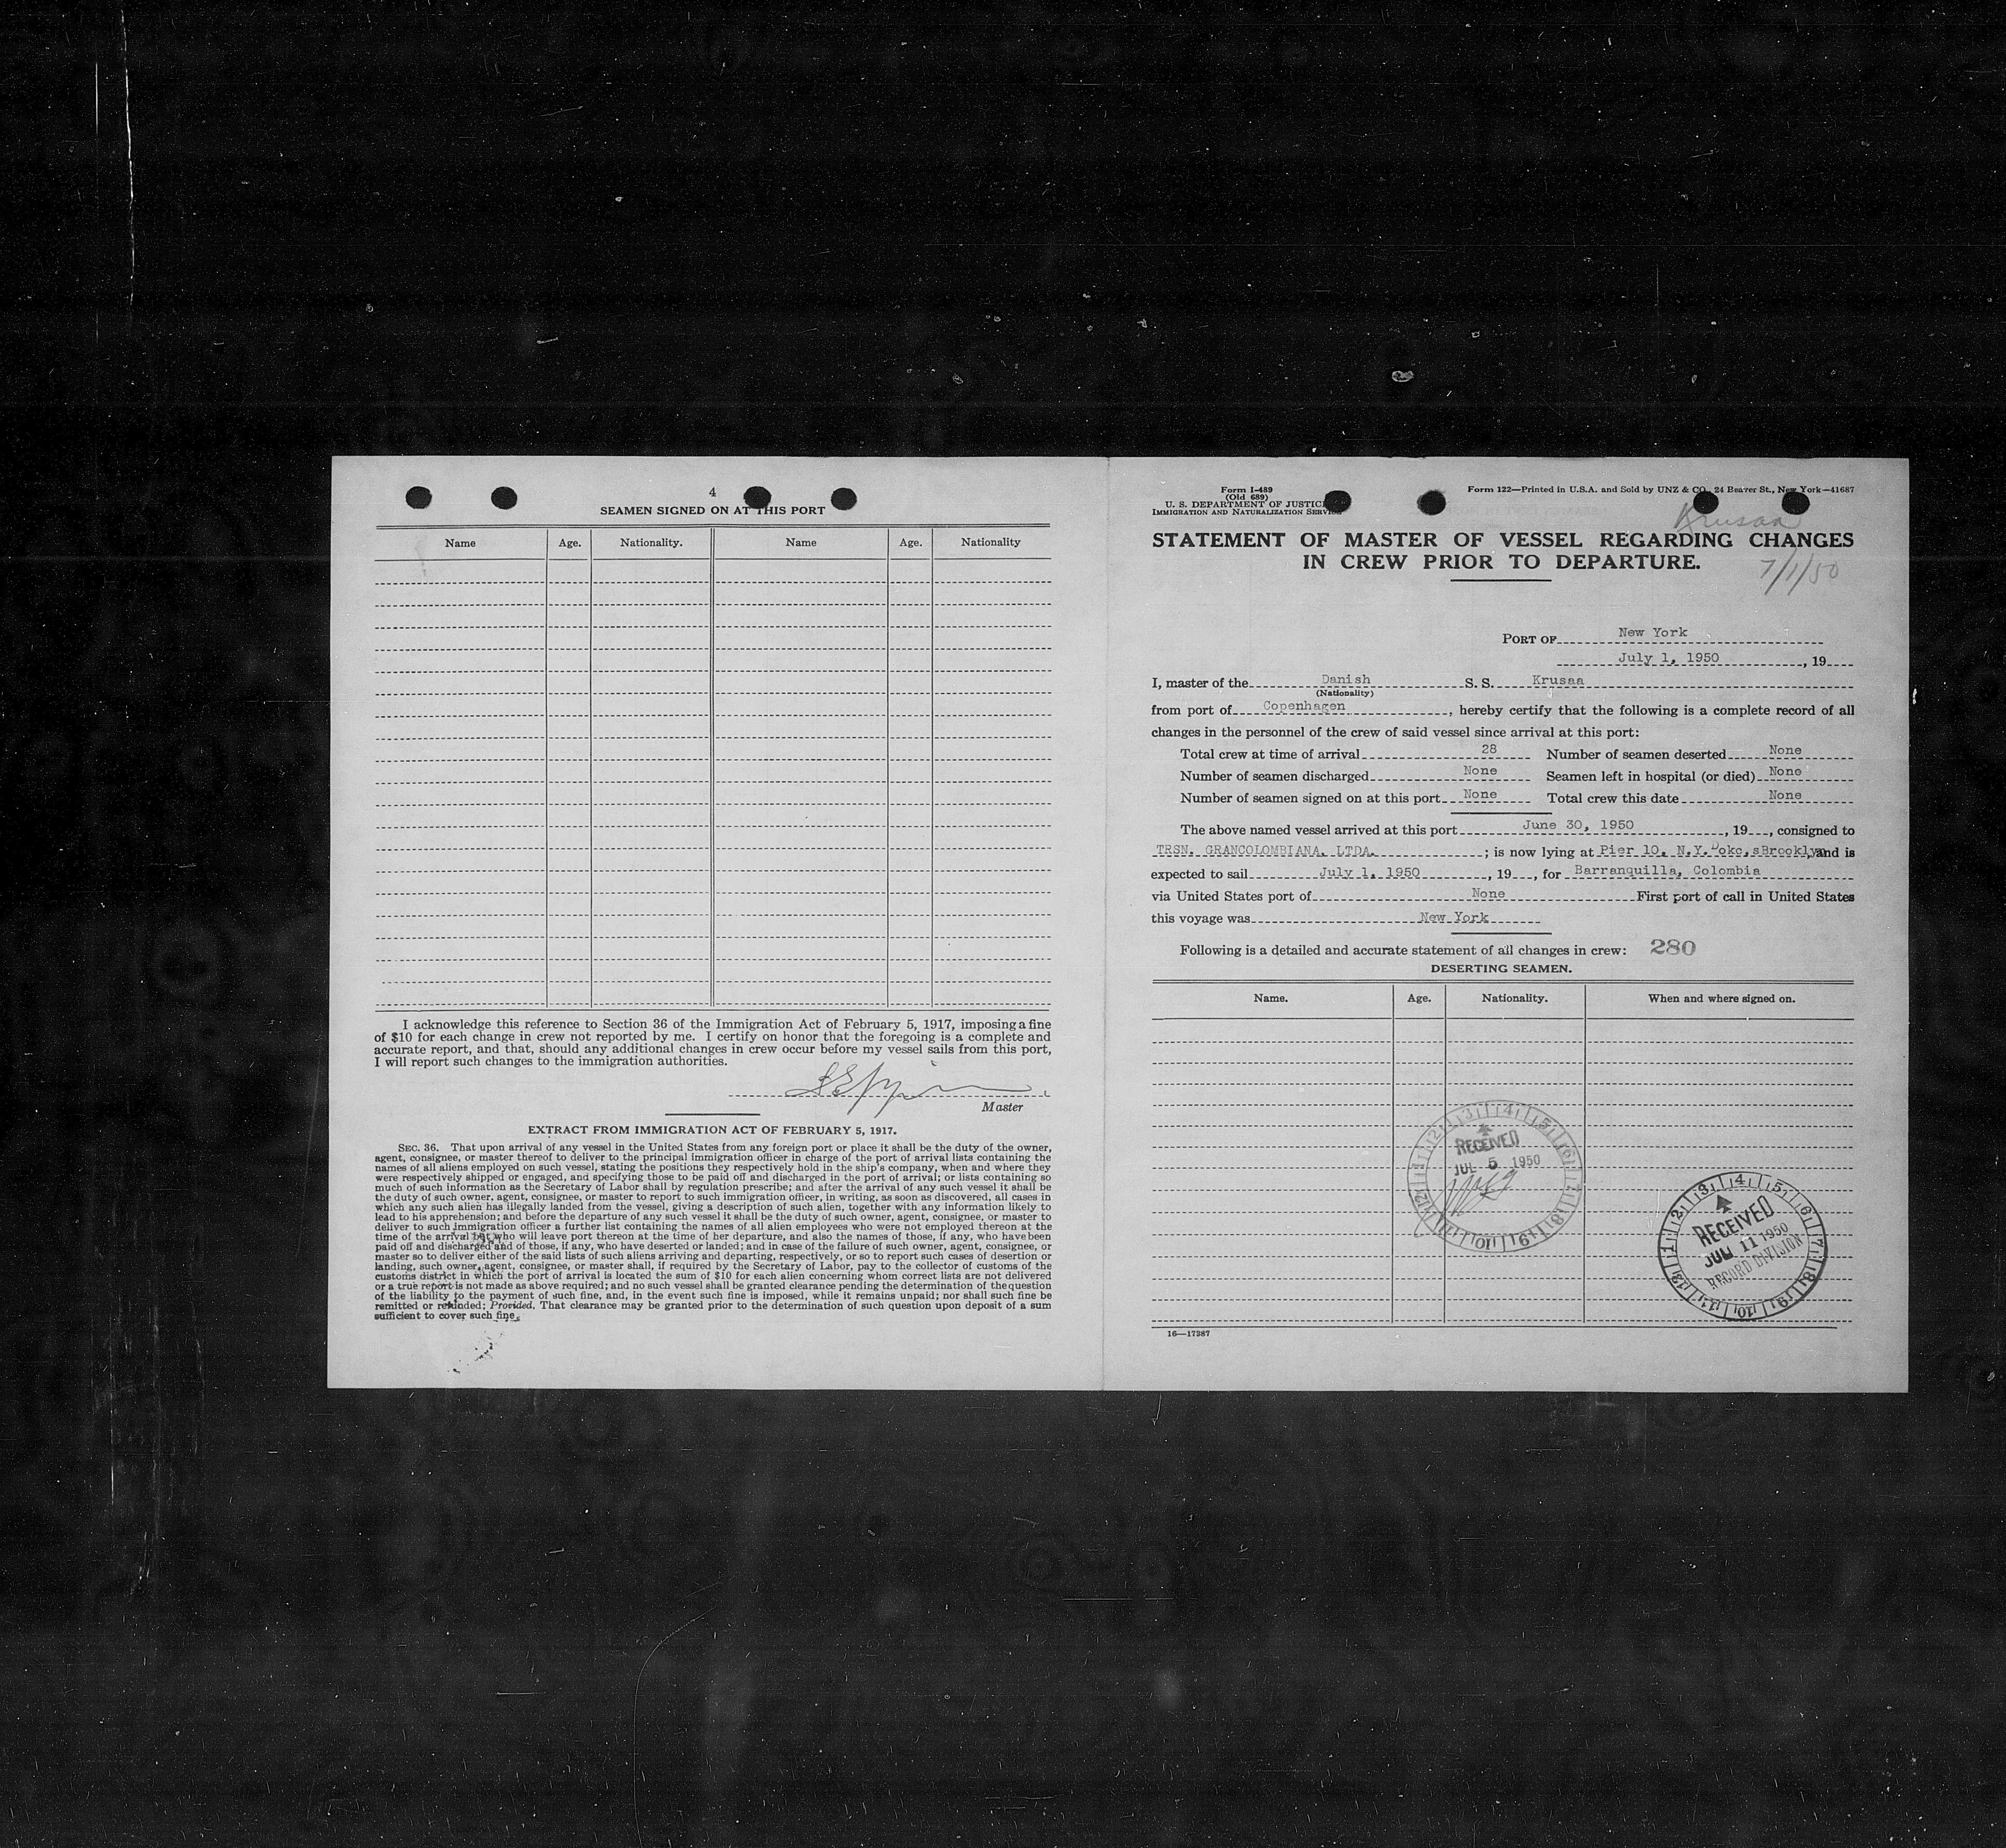 4
SEAMEN SIGNED ON AT THIS PORT
Name Age. Nationality. Name Age. Nationality
I acknowledge this reference to Section 36 of the Immigration Act of February 5, 1917, imposing a fine
of $10 for each change in crew not reported by me. I certify on honor that the foregoing is a complete and
accurate report, and that, should any additional changes in crew occur before my vessel sails from this port,
I will report such changes to the immigration authorities.
Master
EXTRACT FROM IMMIGRATION ACT OF FEBRUARY 5, 1917.
SEC. 36. That upon arrival of any vessel in the United States from any foreign port or place it shall be the duty of the owner,
agent, consignee, or master thereof to deliver to the principal immigration officer in charge of the port of arrival lists containing the
names of all aliens employed on such vessel, stating the positions they respectively hold in the ship's company, when and where they
were respectively shipped or engaged, and specifying those to be paid off and discharged in the port of arrival; or lists containing so
much of such information as the Secretary of Labor shall by regulation prescribe; and after the arrival of any such vessel it shall be
the duty of such owner, agent, consignee, or master to report to such immigration officer, in writing, as soon as discovered, all cases in
which any such alien has illegally landed from the vessel, giving a description of such alien, together with any information likely to
lead to his apprehension; and before the departure of any such vessel it shall be the duty of such owner, agent, consignee, or master to
deliver to such immigration officer a further list containing the names of all alien employees who were not employed thereon at the
time of the arrival but who will leave port thereon at the time of her departure, and also the names of those, if any, who have been
paid off and discharged and of those, if any, who have deserted or landed; and in case of the failure of such owner, agent, consignee, or
master so to deliver either of the said lists of such aliens arriving and departing, respectively, or so to report such cases of desertion or
landing, such owner, agent, consignee, or master shall, if required by the Secretary of Labor, pay to the collector of customs of the
customs district in which the port of arrival is located the sum of $10 for each alien concerning whom correct lists are not delivered
or a true report is not made as above required; and no such vessel shall be granted clearance pending the determination of the question
of the liability to the payment of such fine, and, in the event such fine is imposed, while it remains unpaid; nor shall such fine be
remitted or refunded; Provided, That clearance may be granted prior to the determination of such question upon deposit of a sum
sufficient to cover such fine.
Form I-489
(Old 689)
U. S. DEPARTMENT OF JUSTICE
IMMIGRATION AND NATURALIZATION SERVICE
Form 122—Printed in U.S.A. and Sold by UNZ & CO. 24 Beaver St., New York—41687
Krusaa
STATEMENT OF MASTER OF VESSEL REGARDING CHANGES
IN CREW PRIOR TO DEPARTURE.
7/1/50
PORT OF New York
July 1, 1950, 19
I, master of the Danish S. S. Krusaa
(Nationality)
from port of Copenhagen, hereby certify that the following is a complete record of all
changes in the personnel of the crew of said vessel since arrival at this port:
Total crew at time of arrival 28 Number of seamen deserted None
Number of seamen discharged None Seamen left in hospital (or died) None
Number of seamen signed on at this port None Total crew this date None
The above named vessel arrived at this port June 30, 1950, 19, consigned to
TRSN. GRANCOLOMBIANA, LTDA. ; is now lying at Pier 10, N.Y. Dokc,sBrooklyn and is
expected to sail July 1, 1950, 19, for Barranquilla, Colombia
via United States port of None First port of call in United States
this voyage was New York
Following is a detailed and accurate statement of all changes in crew: 280
DESERTING SEAMEN.
Name. Age. Nationality. When and where signed on.
RECEIVED
JUL 5 1950
RECEIVED
JUL 11 1950
RECORD DIVISION
16—17387